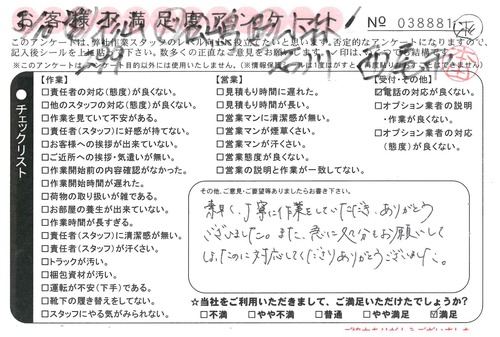 お客様ご満足度アンケート
No 038881
このアンケートは、弊社作業スタッフのレベル向上に役立てたいと思います。否定的なアンケートになりますので、
※このアンケート目的以外には使用いたしません。
チェックリスト
【作業】
□責任者の対応(態度)が良くない。
□他のスタッフの対応(態度)が良くない。
□作業を見ていて不安がある。
□責任者(スタッフ)に好感が持てない。
□お客様への挨拶が出来ていない。
□ご近所への挨拶・気遣いが無い。
□作業開始前の内容確認がなかった。
□作業開始時間が遅れた。
□荷物の取り扱いが雑である。
□お部屋の養生が出来ていない。
□作業時間が長すぎる。
□責任者(スタッフ)に清潔感が無い。
□責任者(スタッフ)が汗くさい。
□トラックが汚い。
□梱包資材が汚い。
□運転が不安(下手)である。
□靴下の履き替えをしてない。
□スタッフにやる気がみられない。
【営業】
□見積もり時間に遅れた。
□見積もり時間が長い。
□営業マンに清潔感が無い。
□営業マンが煙草くさい。
□営業マンが汗くさい。
□営業態度が良くない。
□営業の説明と作業が一致してない。
【受付・その他】
□電話の対応が良くない。
□オプション業者の説明
・作業が良くない。
□オプション業者の対応
(態度)が良くない。
その他、ご意見・ご要望等ありましたらお書き下さい。
素早く、丁寧に作業をしていただき、ありがとう
ございました。また、急に処分をお願いして
しまったのに対応してくださりありがとうございました。
☆当社をご利用いただきまして、ご満足いただけたでしょうか?
□不満 □やや不満 □普通 □やや満足 ☑満足